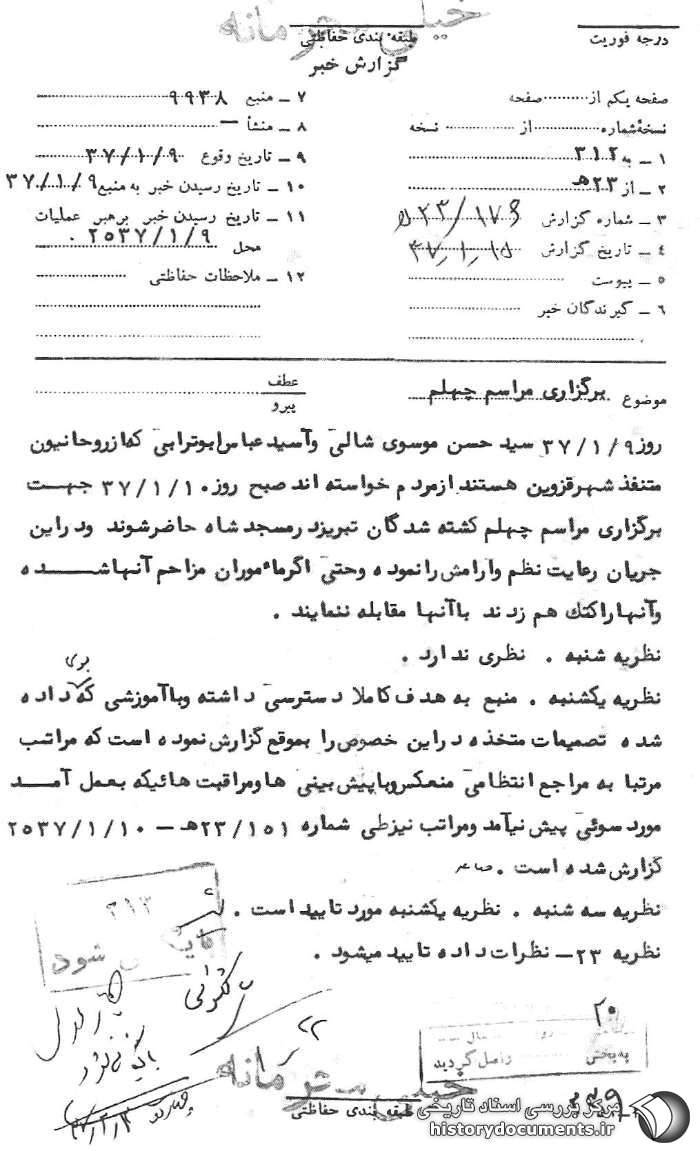 خیلی محرمانه
طبقه بندی حفاظتی
درجه فوریت
گزارش خبر
صفحه یکم از ........ صفحه
نسخه شماره ........ از ........ نسخه
۱ ـ به ۳۱۲
۲ ـ از ۲۳هـ
۳ ـ شماره گزارش
۴ ـ تاریخ گزارش
۵ ـ پیوست
۶ ـ گیرندگان خبر
۷ ـ منبع ۹۹۳۸
۸ ـ منشأ —
۹ ـ تاریخ وقوع ۳۷/۱/۹
۱۰ ـ تاریخ رسیدن خبر به منبع ۳۷/۱/۹
۱۱ ـ تاریخ رسیدن خبر برهبر عملیات
محل ۲۵۳۷/۱/۹ .
۱۲ ـ ملاحظات حفاظتی
موضوع برگزاری مراسم چهلم
عطف
پیرو
روز ۳۷/۱/۹ سید حسن موسوی شالی وآسیدعباس ابوترابی که ازروحانیون
متنفذ شهرقزوین هستند ازمردم خواسته اند صبح روز ۳۷/۱/۱۰ جهت
برگزاری مراسم چهلم کشته شدگان تبریز درمسجد شاه حاضرشوند ودراین
جریان رعایت نظم وآرامش رانموده وحتی اگرمأموران مزاحم آنهاشده
وآنهاراکتک هم زدند باآنها مقابله ننمایند .
نظریه شنبه . نظری ندارد .
نظریه یکشنبه . منبع به هدف کاملا دسترسی داشته وباآموزشی که بوی داده
شده تصمیمات متخذه دراین خصوص را بموقع گزارش نموده است که مراتب
مرتبا به مراجع انتظامی منعکس وباپیش بینی هاومراقبت هائیکه بعمل آمد
مورد سوئی پیش نیآمد ومراتب نیزطی شماره ۲۳/۱۵۱هـ – ۲۵۳۷/۱/۱۰
گزارش شده است .
نظریه سه شنبه . نظریه یکشنبه مورد تایید است .
نظریه ۲۳– نظرات داده تایید میشود .
۳۱۲
بایگانی شود
۲۰
به بخش
واصل گردید
خیلی محرمانه
طبقه بندی حفاظتی
مرکز بررسی اسناد تاریخی
historydocuments.ir